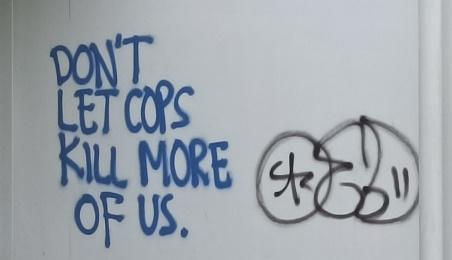 DON'T
LET COPS
KILL MORE
OF US.